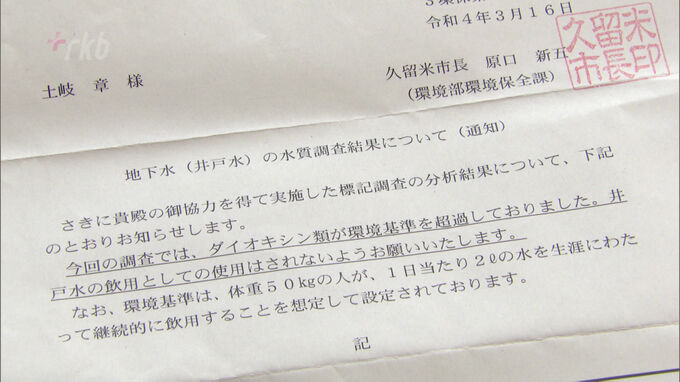 rkb
令和４年３月１６日
久留米市長 原口 新五
(環境部環境保全課)
久留米
市長印
土岐 章 様
地下水（井戸水）の水質調査結果について（通知）
さきに貴殿の御協力を得て実施した標記調査の分析結果について、下記
のとおりお知らせします。
今回の調査では、ダイオキシン類が環境基準を超過しておりました。井
戸水の飲用としての使用はされないようお願いいたします。
なお、環境基準は、体重５０kgの人が、１日当たり２ℓの水を生涯にわた
って継続的に飲用することを想定して設定されております。
記